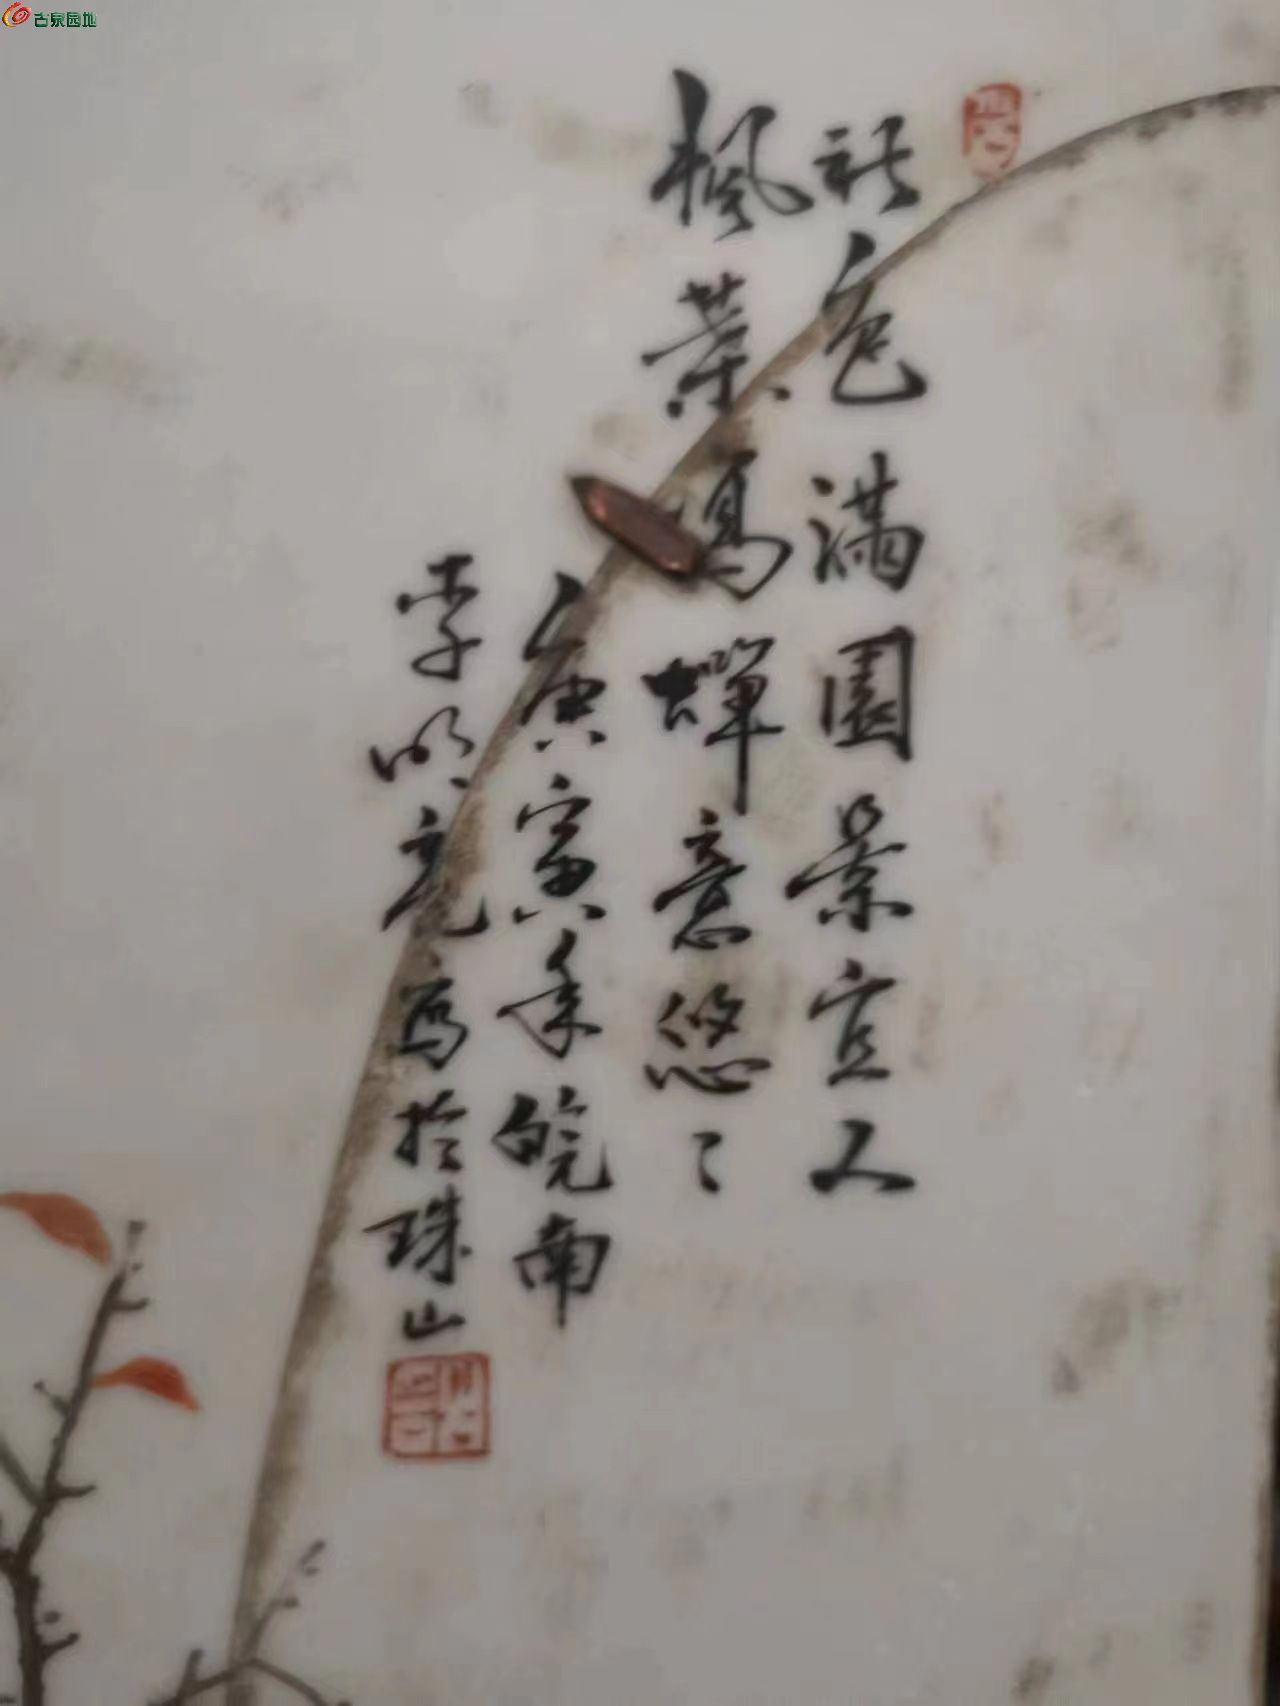 古泉园地
秋色满園景宜人
枫葉鳴蟬意悠〻
庚寅年皖南
李明亮寫於珠山